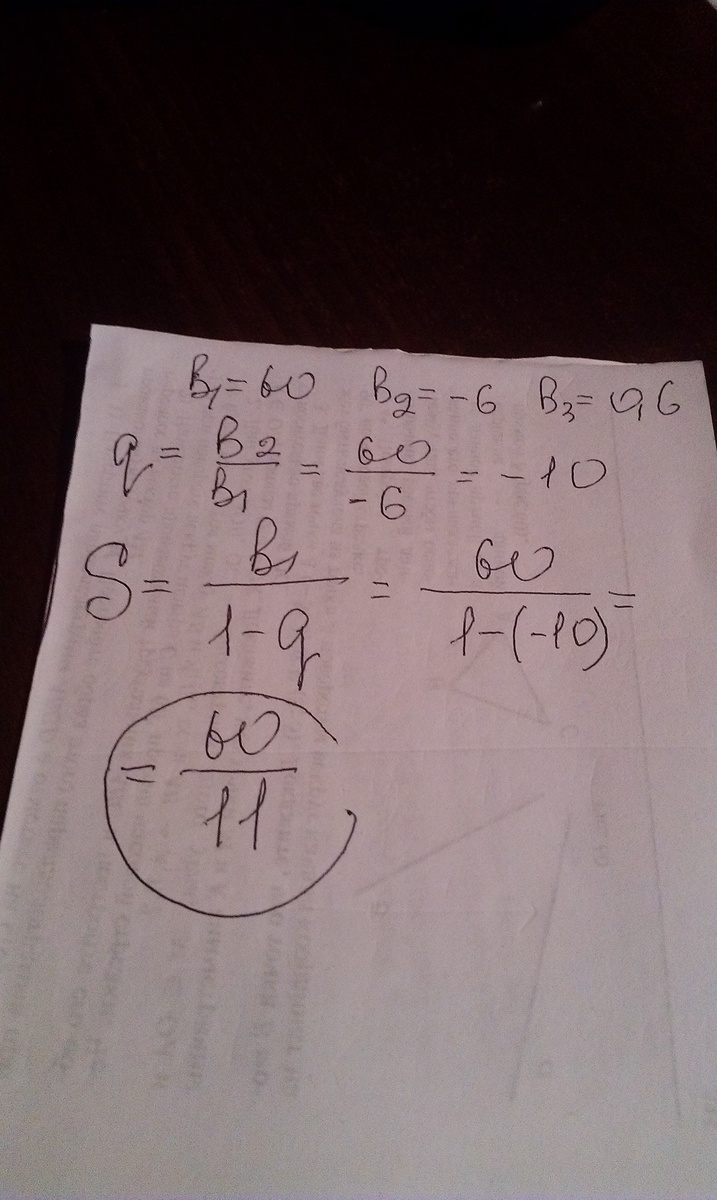 B₁=60 B₂=-6 B₃=0,6
q = B2/B1 = 60/-6 = -10
S= B1/1-q = 60/1-(-10) =
= 60/11